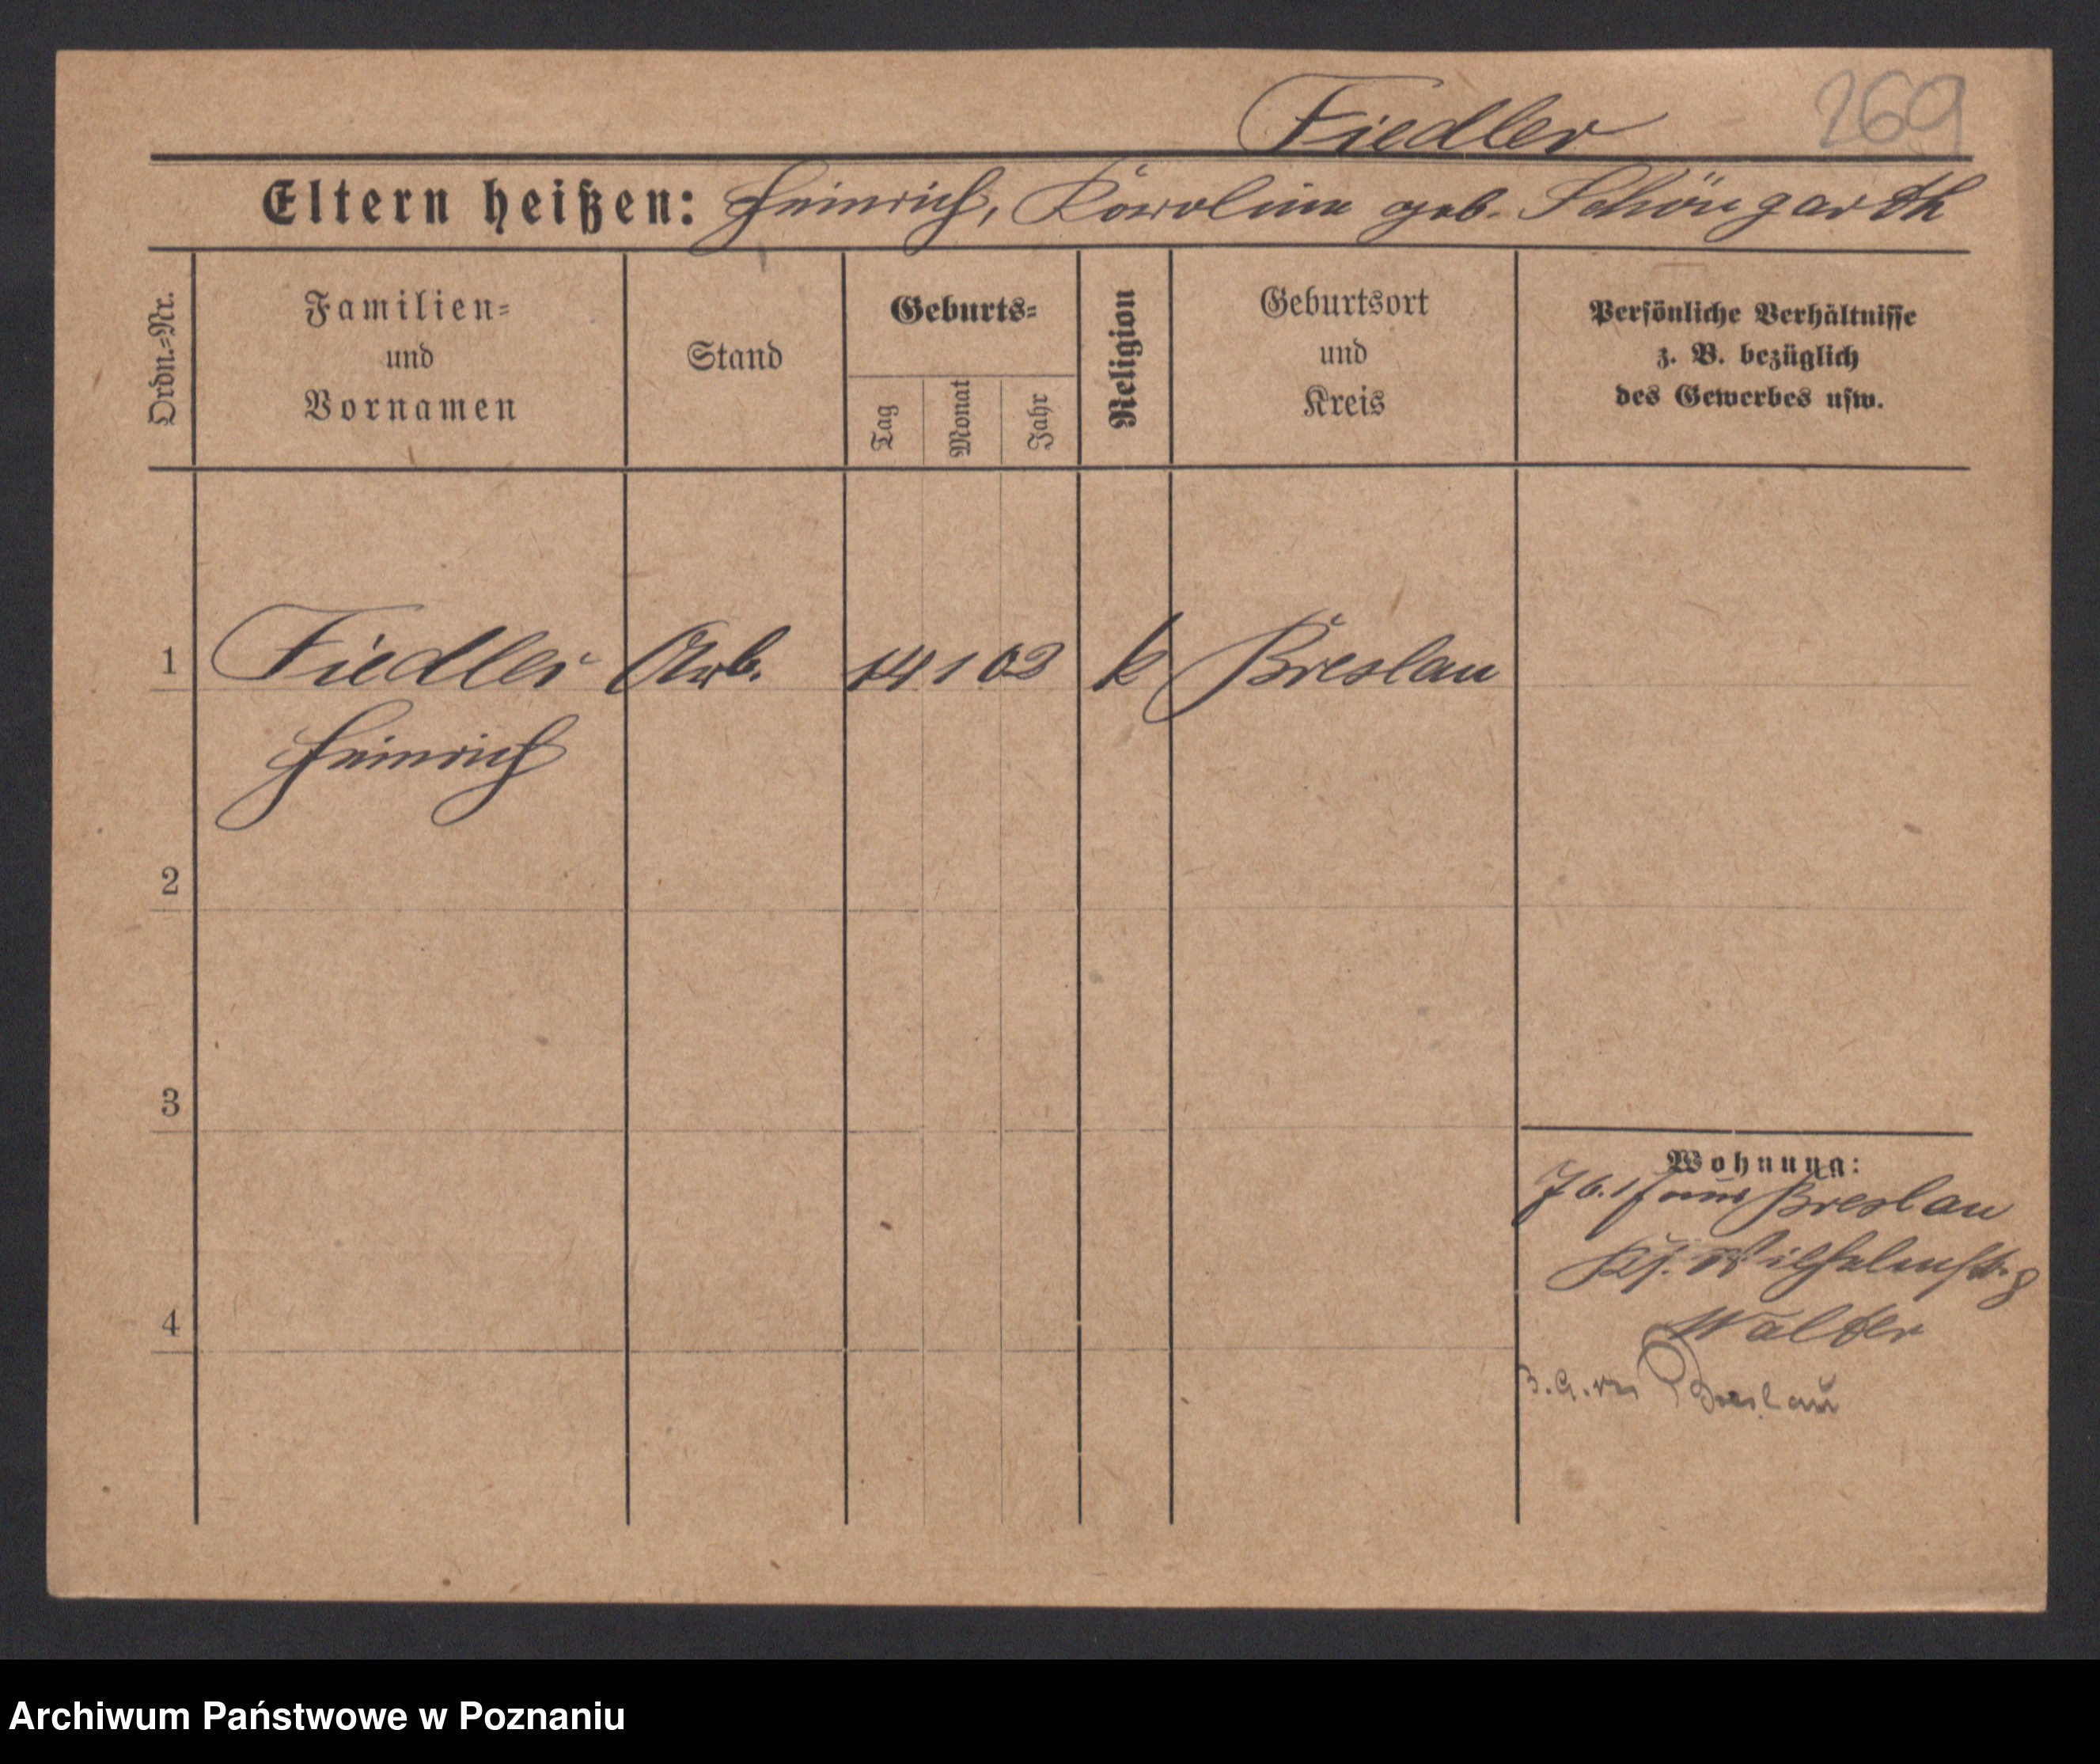 Fiedler 269
Eltern heißen: Heinrich, Karoline geb. Schöngarth
Ordn.-Nr.
Familien-
und
Vornamen
Stand
Geburts-
Tag
Monat
Jahr
Religion
Geburtsort
und
Kreis
Persönliche Verhältnisse
z. B. bezüglich
des Gewerbes usw.
1 Fiedler Arb. 14 1 03 k Breslau
Heinrich
2
3
4
Wohnung:
aus Breslau
Wilhelmstr. 8
Walter
Breslau
Archiwum Państwowe w Poznaniu